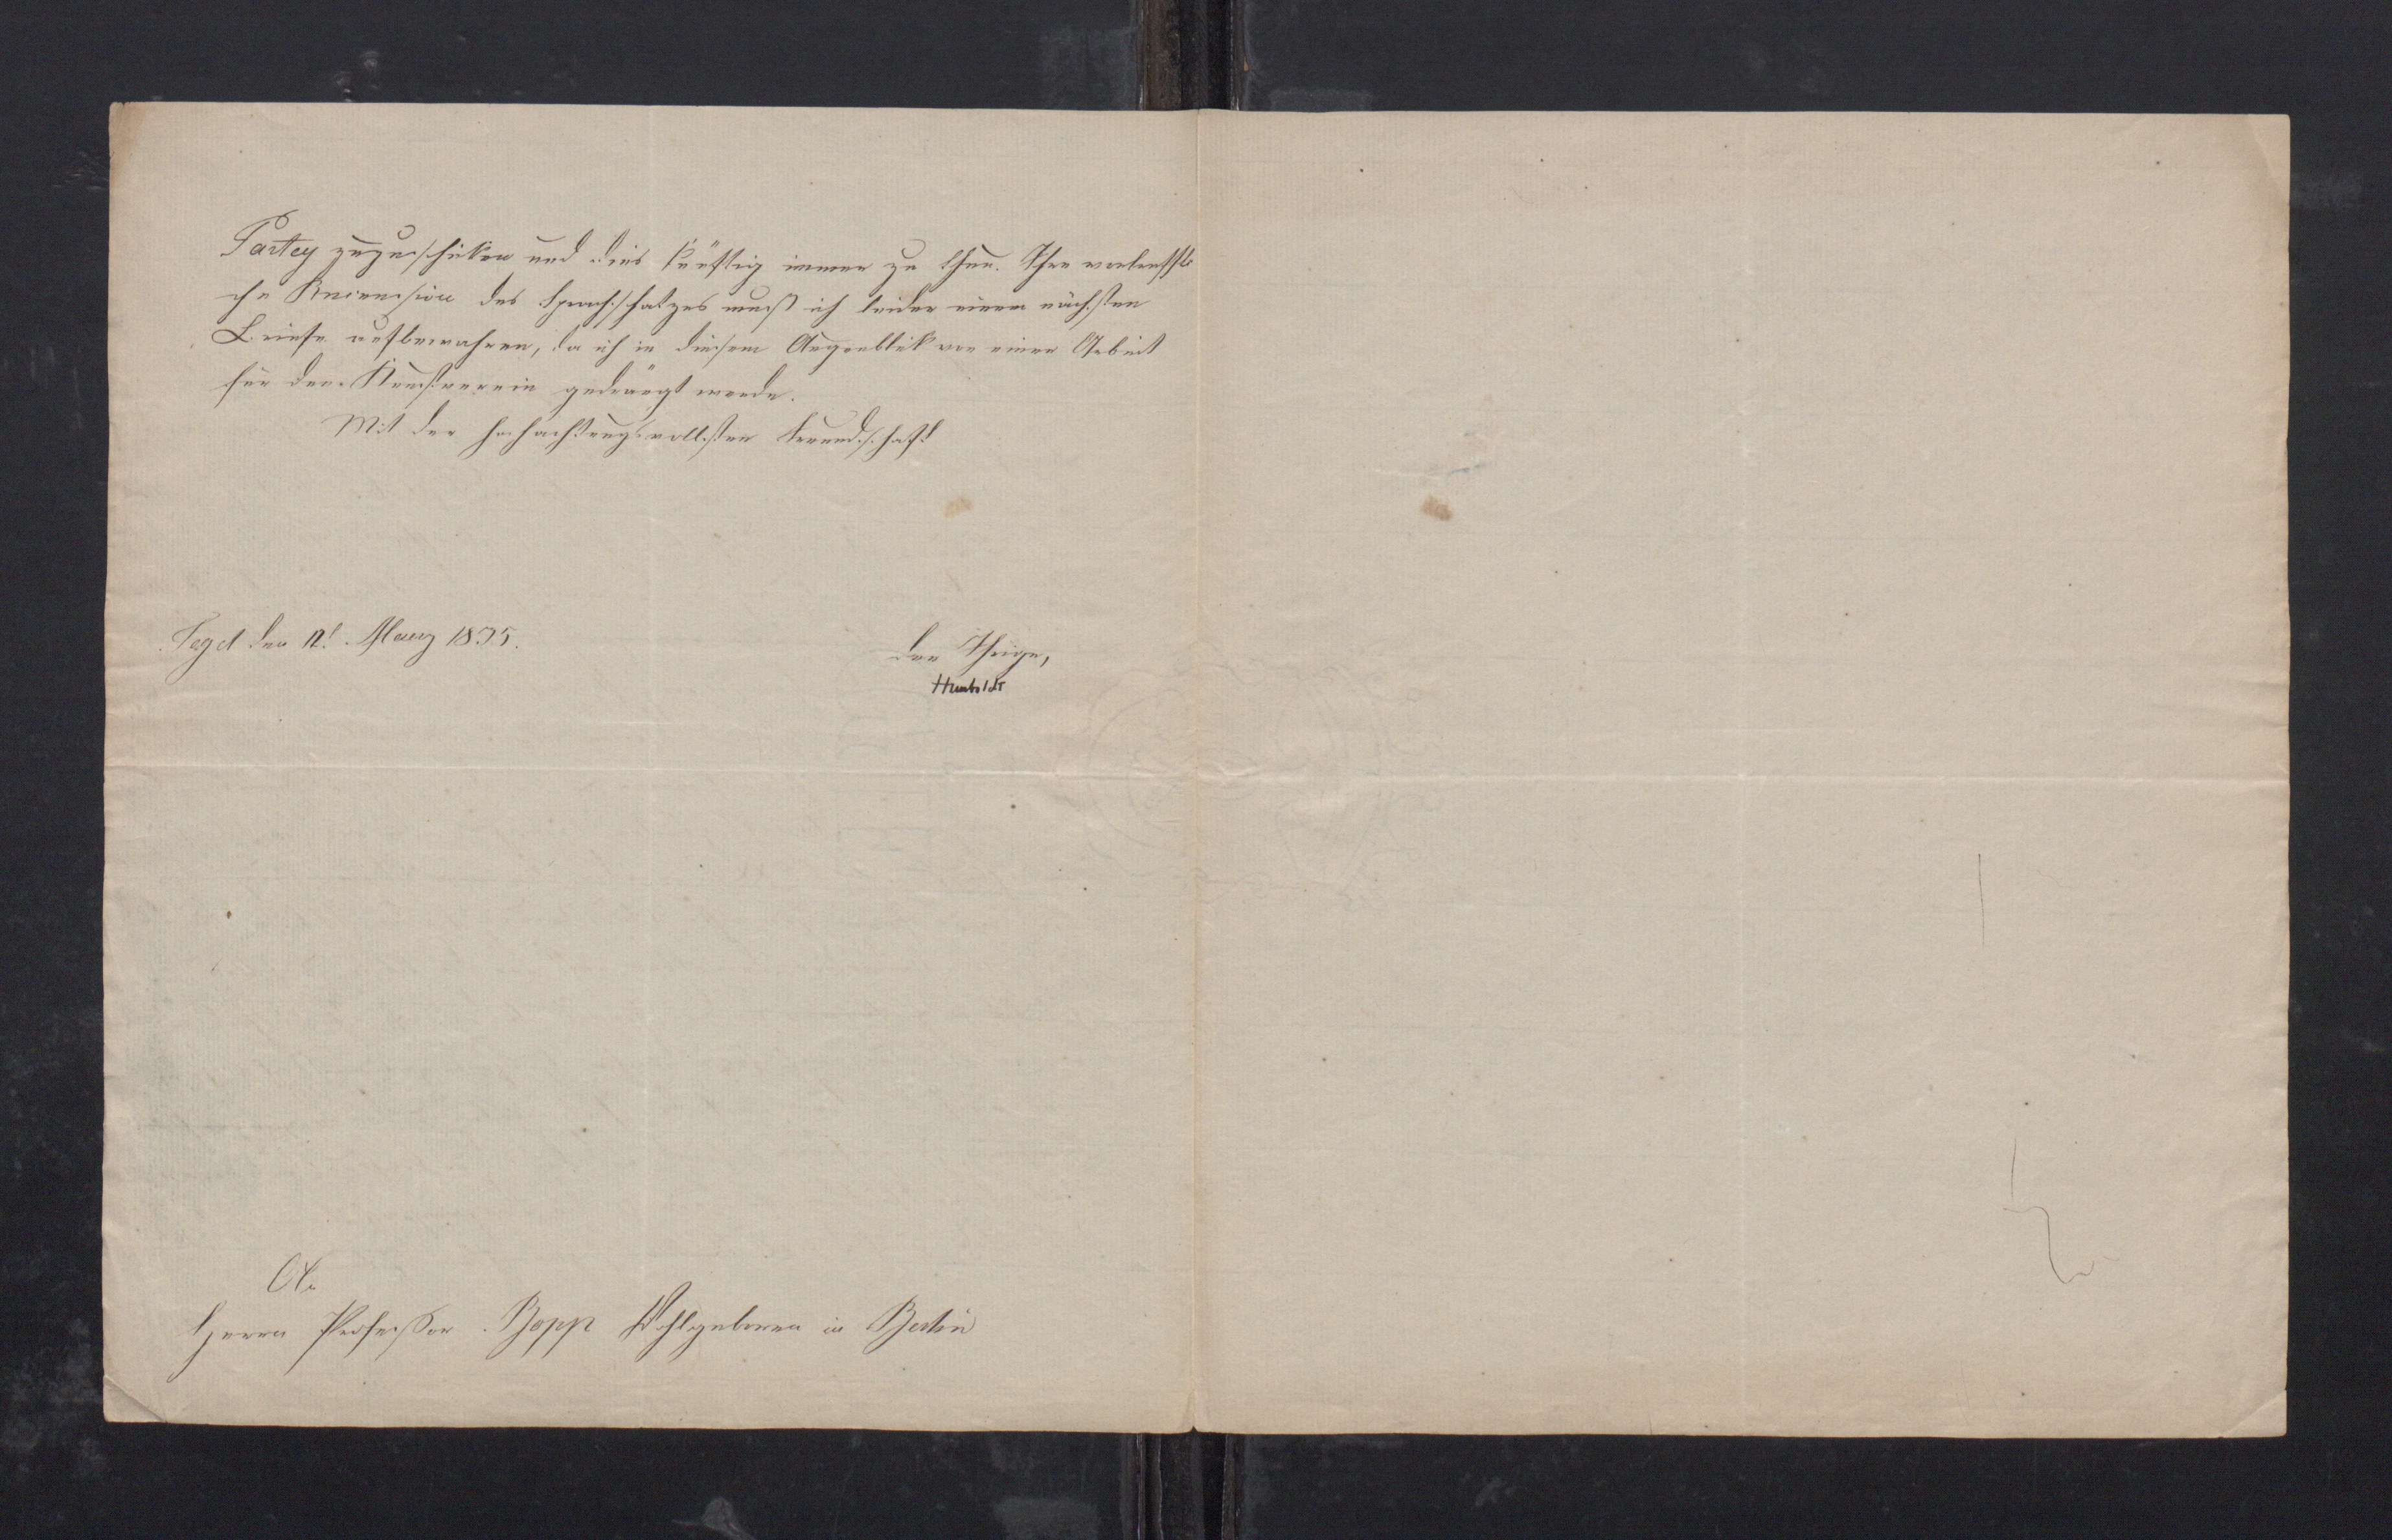 Partey zuzuschicken und dies künftig immer zu thun. Ihre vortreffli
che Recension des Sprachschatzes muß ich leider einem nächsten
Briefe aufbewahren, da ich in diesem Augenblik von einer Arbeit
für den Kunstverein gedrängt werde.
Mit der hochachtungsvollsten Freundschaft
der Ihrige,
Humboldt
Tegel den März 1835.
An
Herrn Professor Bopp Wohlgeboren in Berlin